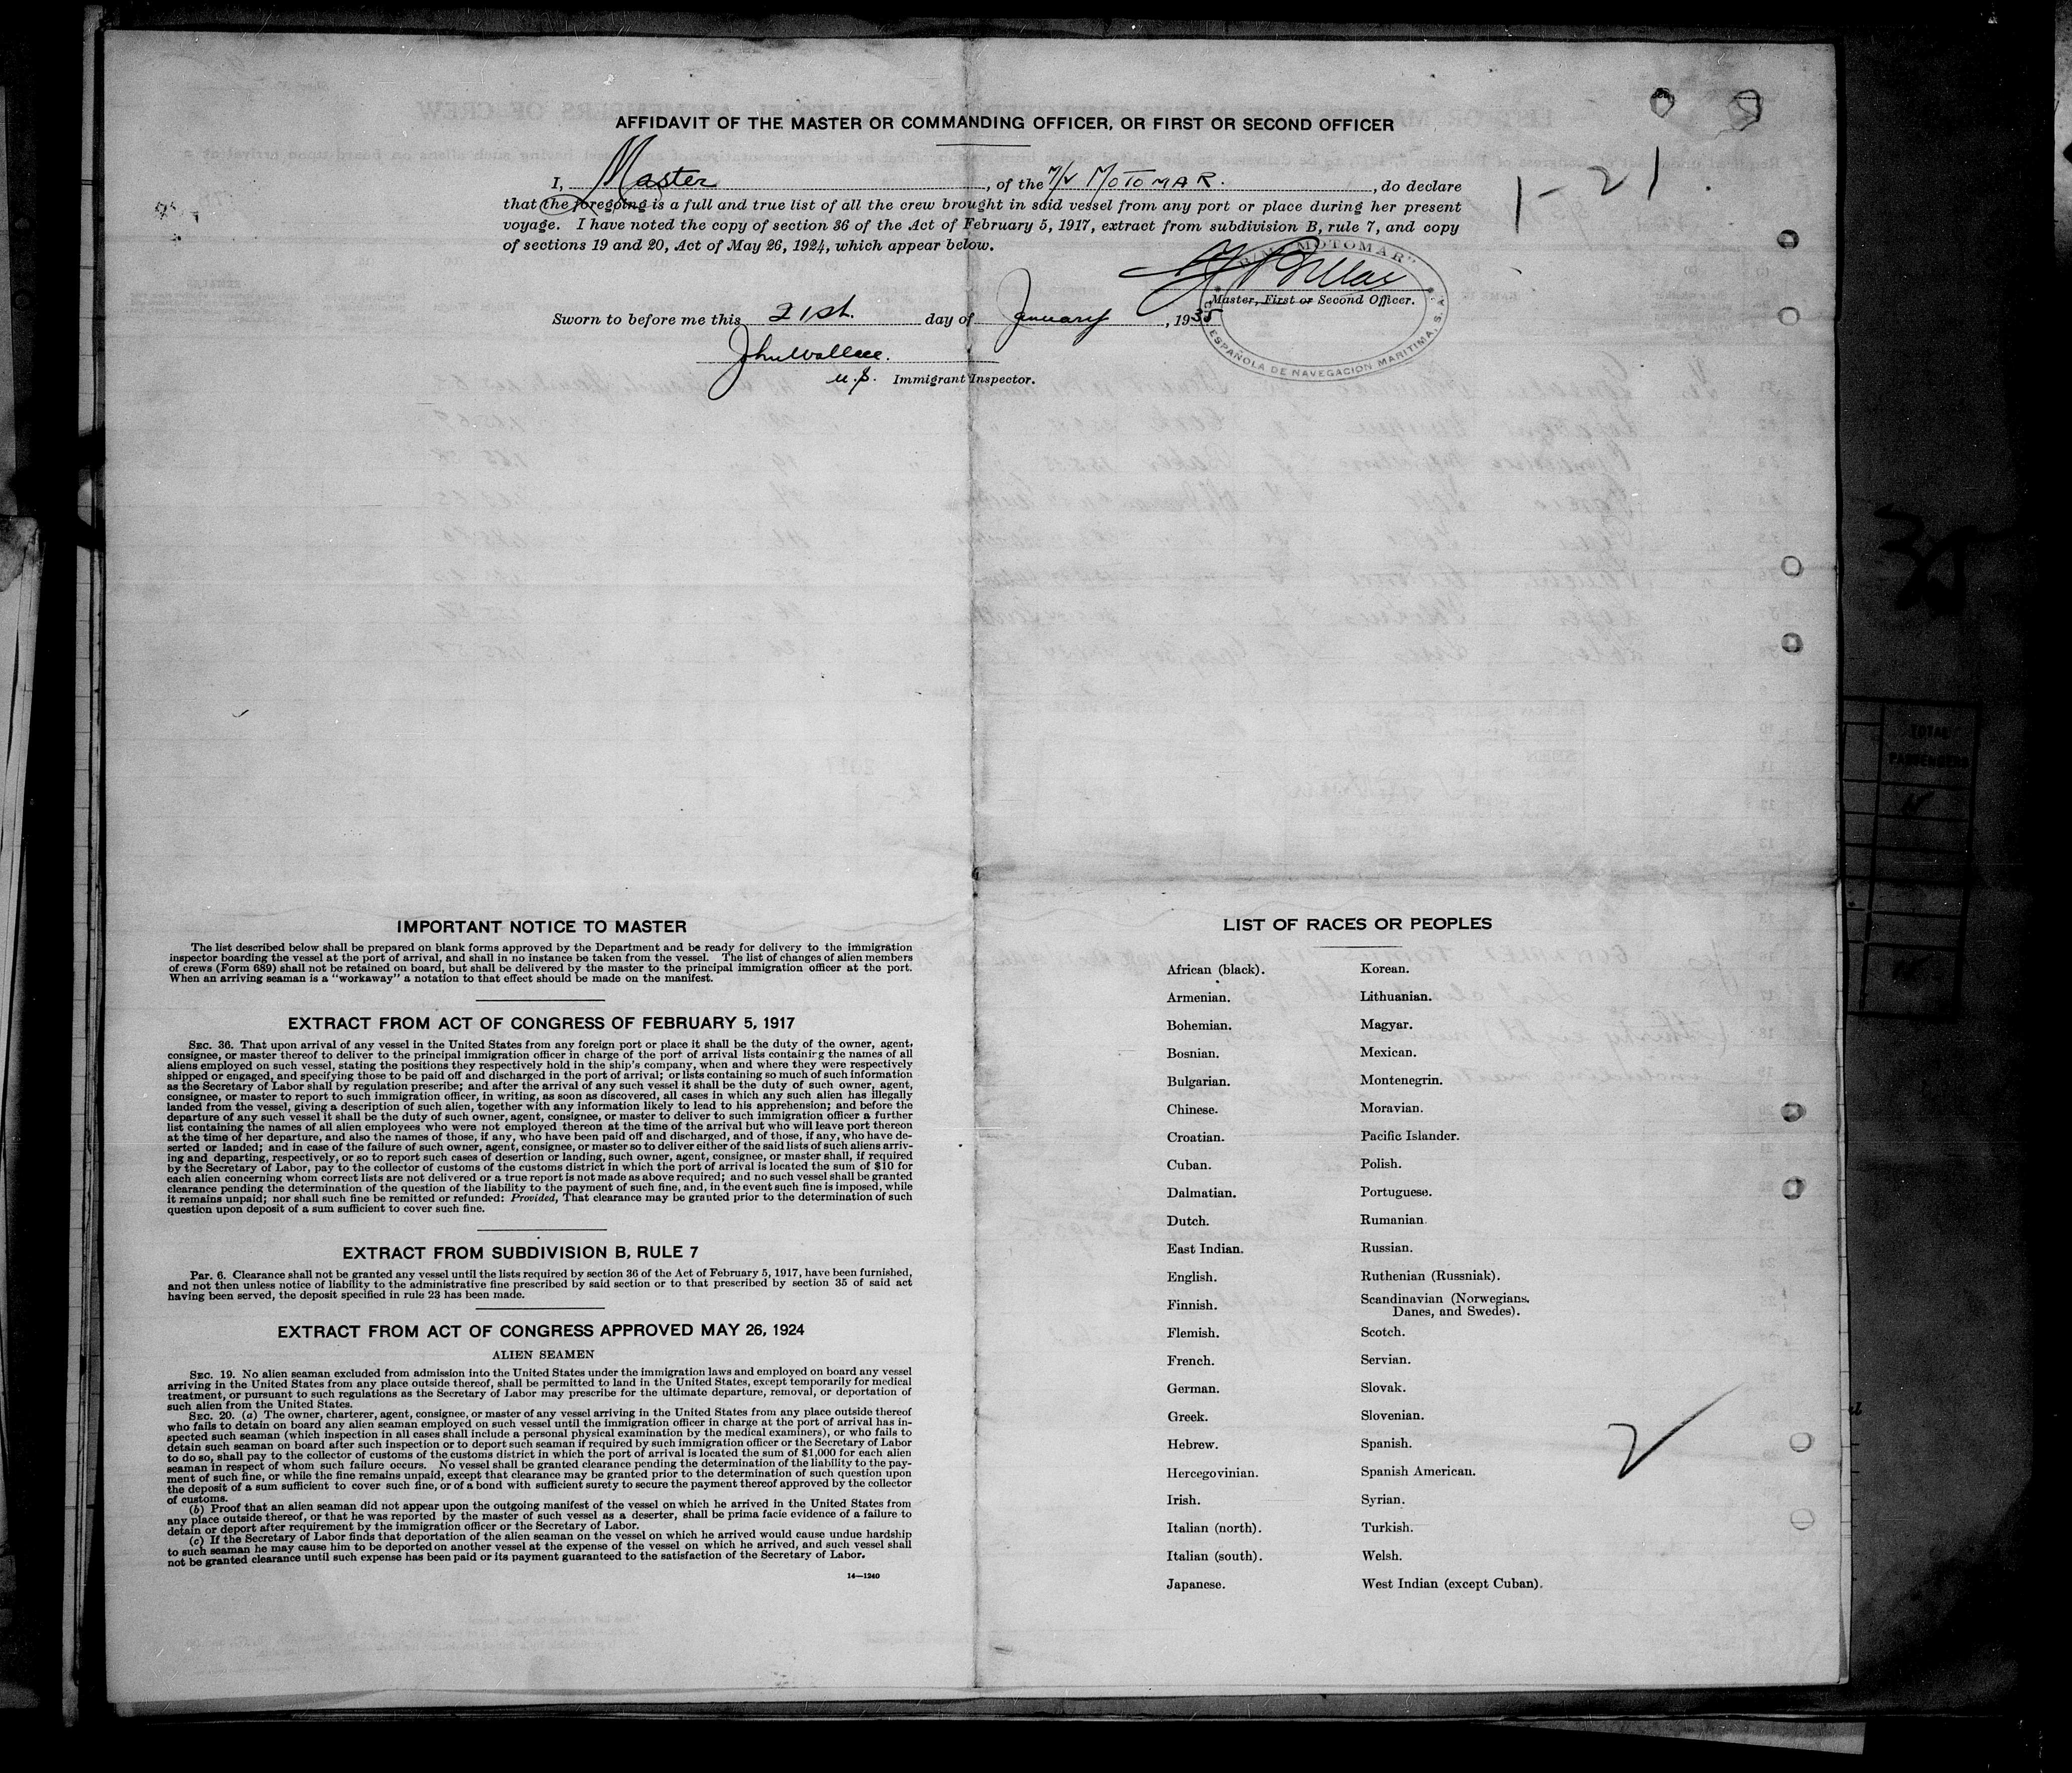 AFFIDAVIT OF THE MASTER OR COMMANDING OFFICER, OR FIRST OR SECOND OFFICER
I, Master, of the M/V MOTOMAR., do declare
that the foregoing is a full and true list of all the crew brought in said vessel from any port or place during her present
voyage. I have noted the copy of section 36 of the Act of February 5, 1917, extract from subdivision B, rule 7, and copy
of sections 19 and 20, Act of May 26, 1924, which appear below.
1-21
MOTOMAR"
Master, First or Second Officer.
ESPAÑOLA DE NAVEGACION MARITIMA, S. A.
Sworn to before me this 21st. day of January, 1935
John Wallace.
U.S. Immigrant Inspector.
35
TOTAL
PASSENGERS
IMPORTANT NOTICE TO MASTER
The list described below shall be prepared on blank forms approved by the Department and be ready for delivery to the immigration
inspector boarding the vessel at the port of arrival, and shall in no instance be taken from the vessel. The list of changes of alien members
of crews (Form 689) shall not be retained on board, but shall be delivered by the master to the principal immigration officer at the port.
When an arriving seaman is a "workaway" a notation to that effect should be made on the manifest.
EXTRACT FROM ACT OF CONGRESS OF FEBRUARY 5, 1917
SEC. 36. That upon arrival of any vessel in the United States from any foreign port or place it shall be the duty of the owner, agent,
consignee, or master thereof to deliver to the principal immigration officer in charge of the port of arrival lists containing the names of all
aliens employed on such vessel, stating the positions they respectively hold in the ship's company, when and where they were respectively
shipped or engaged, and specifying those to be paid off and discharged in the port of arrival; or lists containing so much of such information
as the Secretary of Labor shall by regulation prescribe; and after the arrival of any such vessel it shall be the duty of such owner, agent,
consignee, or master to report to such immigration officer, in writing, as soon as discovered, all cases in which any such alien has illegally
landed from the vessel, giving a description of such alien, together with any information likely to lead to his apprehension; and before the
departure of any such vessel it shall be the duty of such owner, agent, consignee, or master to deliver to such immigration officer a further
list containing the names of all alien employees who were not employed thereon at the time of the arrival but who will leave port thereon
at the time of her departure, and also the names of those, if any, who have been paid off and discharged, and of those, if any, who have de-
serted or landed; and in case of the failure of such owner, agent, consignee, or master so to deliver either of the said lists of such aliens arriv-
ing and departing, respectively, or so to report such cases of desertion or landing, such owner, agent, consignee, or master shall, if required
by the Secretary of Labor, pay to the collector of customs of the customs district in which the port of arrival is located the sum of $10 for
each alien concerning whom correct lists are not delivered or a true report is not made as above required; and no such vessel shall be granted
clearance pending the determination of the question of the liability to the payment of such fine, and, in the event such fine is imposed, while
it remains unpaid; nor shall such fine be remitted or refunded: Provided, That clearance may be granted prior to the determination of such
question upon deposit of a sum sufficient to cover such fine.
EXTRACT FROM SUBDIVISION B, RULE 7
Par. 6. Clearance shall not be granted any vessel until the lists required by section 36 of the Act of February 5, 1917, have been furnished,
and not then unless notice of liability to the administrative fine prescribed by said section or to that prescribed by section 35 of said act
having been served, the deposit specified in rule 23 has been made.
EXTRACT FROM ACT OF CONGRESS APPROVED MAY 26, 1924
ALIEN SEAMEN
SEC. 19. No alien seaman excluded from admission into the United States under the immigration laws and employed on board any vessel
arriving in the United States from any place outside thereof, shall be permitted to land in the United States, except temporarily for medical
treatment, or pursuant to such regulations as the Secretary of Labor may prescribe for the ultimate departure, removal, or deportation of
such alien from the United States.
SEC. 20. (a) The owner, charterer, agent, consignee, or master of any vessel arriving in the United States from any place outside thereof
who fails to detain on board any alien seaman employed on such vessel until the immigration officer in charge at the port of arrival has in-
spected such seaman (which inspection in all cases shall include a personal physical examination by the medical examiners), or who fails to
detain such seaman on board after such inspection or to deport such seaman if required by such immigration officer or the Secretary of Labor
to do so, shall pay to the collector of customs of the customs district in which the port of arrival is located the sum of $1,000 for each alien
seaman in respect of whom such failure occurs. No vessel shall be granted clearance pending the determination of the liability to the pay-
ment of such fine, or while the fine remains unpaid, except that clearance may be granted prior to the determination of such question upon
the deposit of a sum sufficient to cover such fine, or of a bond with sufficient surety to secure the payment thereof approved by the collector
of customs.
(b) Proof that an alien seaman did not appear upon the outgoing manifest of the vessel on which he arrived in the United States from
any place outside thereof, or that he was reported by the master of such vessel as a deserter, shall be prima facie evidence of a failure to
detain or deport after requirement by the immigration officer or the Secretary of Labor.
(c) If the Secretary of Labor finds that deportation of the alien seaman on the vessel on which he arrived would cause undue hardship
to such seaman he may cause him to be deported on another vessel at the expense of the vessel on which he arrived, and such vessel shall
not be granted clearance until such expense has been paid or its payment guaranteed to the satisfaction of the Secretary of Labor.
14—1240
LIST OF RACES OR PEOPLES
African (black).
Armenian.
Bohemian.
Bosnian.
Bulgarian.
Chinese.
Croatian.
Cuban.
Dalmatian.
Dutch.
East Indian.
English.
Finnish.
Flemish.
French.
German.
Greek.
Hebrew.
Hercegovinian.
Irish.
Italian (north).
Italian (south).
Japanese.
Korean.
Lithuanian.
Magyar.
Mexican.
Montenegrin.
Moravian.
Pacific Islander.
Polish.
Portuguese.
Rumanian.
Russian.
Ruthenian (Russniak).
Scandinavian (Norwegians,
Danes, and Swedes).
Scotch.
Servian.
Slovak.
Slovenian.
Spanish.
Spanish American.
Syrian.
Turkish.
Welsh.
West Indian (except Cuban).